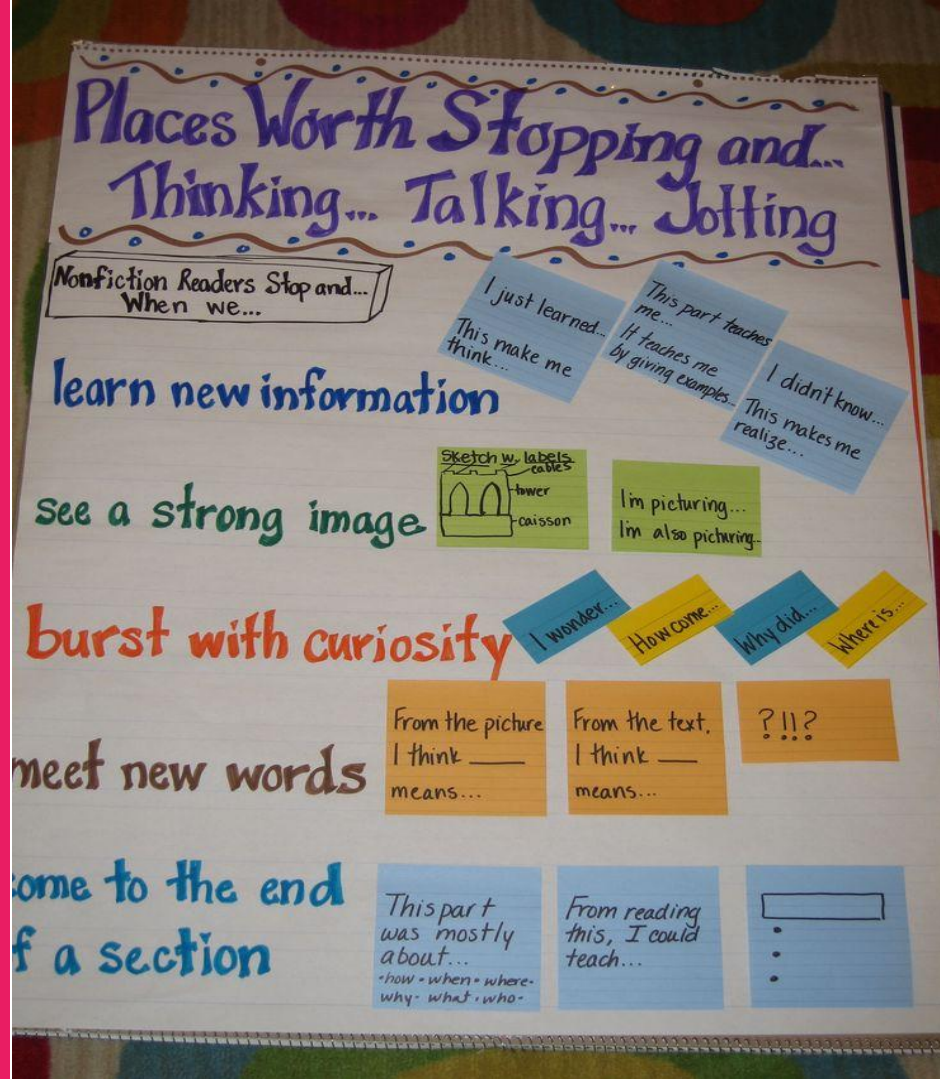 Places Worth Stopping and...
Thinking... Talking... Jotting
Nonfiction Readers Stop and...
When we...
learn new information
I just learned...
This make me
think...
This part teaches
me...
It teaches me
by giving examples...
I didn't know...
This makes me
realize...
see a strong image
Sketch w. labels
cables
tower
caisson
I'm picturing...
I'm also picturing...
burst with curiosity
I wonder...
How come...
Why did...
Where is...
meet new words
From the picture
I think ____
means...
From the text,
I think ____
means...
?!!?
ome to the end
f a section
This part
was mostly
about...
-how - when - where-
why - what - who -
From reading
this, I could
teach...